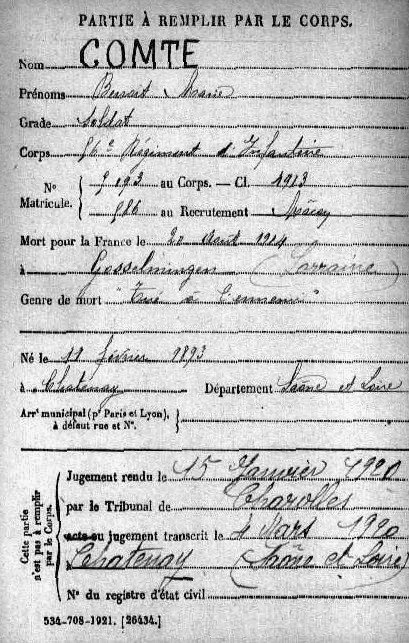 PARTIE À REMPLIR PAR LE CORPS.
Nom COMTE
Prénoms Benoit Marie
Grade Soldat
Corps 56e Régiment d'Infanterie
N° Matricule. { 5193 au Corps. — Cl. 1913
586 au Recrutement Mâcon
Mort pour la France le 20 Août 1914
à Gosselmingen (Lorraine)
Genre de mort "Tué à l'ennemi"
Né le 11 février 1893
à Chatenay Département Saône et Loire
Arrt municipal (pr Paris et Lyon), à défaut rue et N°. }
Cette partie n'est pas à remplir par le Corps.
Jugement rendu le 15 Janvier 1920
par le Tribunal de Charolles
acte ou jugement transcrit le 4 Mars 1920
à Chatenay (Saône et Loire)
N° du registre d'état civil
534-708-1921. [26434.]